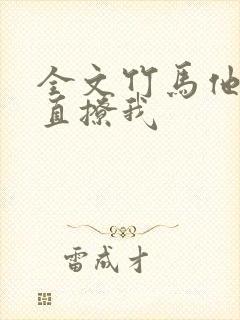 全文竹马他
直撩我
雷成才